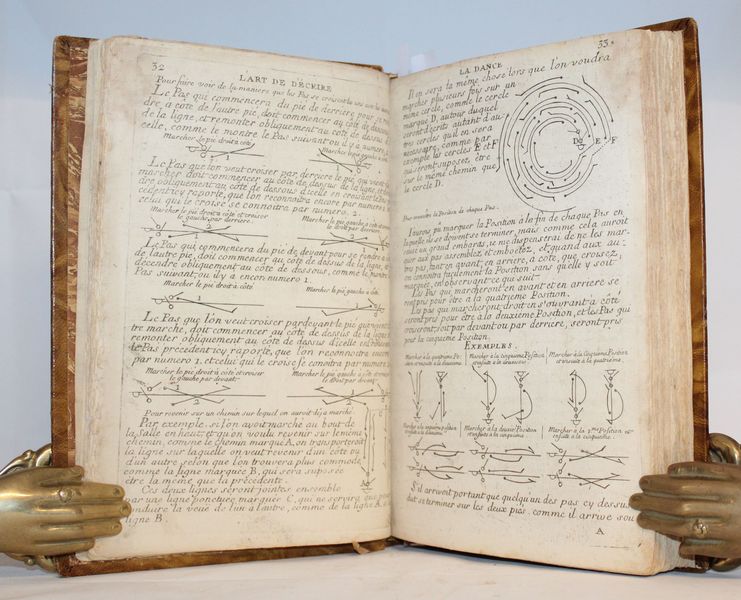 32
L'ART DE DÉCRIRE
Pour faire voir de la maniere que les Pas se croisent les uns sur les autres
Le Pas qui commencera du pié de derriere pour se
dre a côté de l'autre pié, doit commencer au côté de dessus
de la ligne, et remonter obliquement au côté de dessus
celle, comme le montre le Pas suivant ou il y a numero
Marcher le pié droit a côté
Marcher le pié gauche a côté
Le Pas que l'on veut croiser par derriere le pié qui vient de
marcher doit commencer au côté de dessus de la ligne, et
dre obliquement au côté de dessous d'icelle en croisant le Pas
cedent s'y raporte, que l'on reconnoitra encore par numero 1.
celui qui le croise se connoitra par numero. 2.
Marcher le pié droit a côté et croiser
le gauche par derriere.
Marcher le pié gauche a côté
le droit par derriere.
Le Pas qui commencera du pié de devant pour se rendre a côté
de l'autre pié, doit commencer au côté de dessus de la ligne, et
décendre obliquement au côté de dessous, comme le montre le
Pas suivant, ou il y a encor numero 1.
Marcher le pié droit a côté
Marcher le pié gauche a côté
Le Pas que l'on veut croiser pardevant le pié qui vient
tre marché, doit commencer au côté de dessous de la ligne
remonter obliquement au côté de dessus d'icelle en
le Pas précédent s'y raporte, que l'on reconnoitra encore
par numero 1. et celui qui le croise se connoitra par numero 2.
Marcher le pié droit a côté et croiser
le gauche par devant.
Marcher le pié gauche a côté et croiser
le droit par devant.
Pour revenir sur un chemin sur lequel on auroit déja marché.
Par exemple, si l'on avoit marché au bout de
la Salle en haut et qu'on voulu revenir sur le même
chemin, comme le chemin marqué A, on transporteroit
la ligne sur laquelle on veut revenir d'un côté ou
d'un autre selon que l'on trouvera plus commode,
comme la ligne marquée B, qui sera suposée
être la même que la précédente.
Ces deux lignes seront jointes ensemble
par une ligne ponctuée marquée C, qui ne servira que pour
conduire la veüe de l'un a l'autre, comme de la ligne A, a
ligne B.
LA DANCE
33.
Il en sera la même chose lors que l'on voudra
marcher plusieurs fois sur un
même cercle, comme le cercle
marqué D, autour duquel
seront décrits autant d'au-
tres cercles qu'il en sera
necessaire, comme par
exemple les cercles E et F
qui seront suposez, être
sur le même chemin que
le cercle D.
D
E
F
Pour connoitre la Position de chaque Pas.
J'aurois pû marquer la Position à la fin de chaque Pas en
laquelle ils se doivent terminer, mais comme cela auroit
été un grand embaras, je me dispenserai de ne les mar-
quer aux pas assemblez et emboëtez, et quand aux au-
tres pas, tant en avant, en arriere, à côté, que croisez,
on connoîtra facilement la Position sans qu'elle y soit
marquée, en observant ce qui suit.
Les Pas qui marcheront en avant et en arriere se-
ront pris pour être a la quatrieme Position.
Les pas qui marcheront droit en s'ouvrant à côté
seront pris pour être à la deuxieme Position, et les Pas qui
croiseront soit par devant ou par derriere, seront pris
pour la cinquieme Position.
EXEMPLES.
Marcher à la quatrieme Po-
sition et ensuite à la deuxieme.
Marcher à la cinquieme Position
et ensuite à la deuxieme.
Marcher à la Cinquieme Position
et ensuite à la quatrieme.
Marcher à la quatrieme position
et ensuite à la deuxieme.
Marcher à la deuxie. Position
et ensuite à la cinquieme.
Marcher a la 4me Position et
ensuite a la cinquieme.
S'il arrivoit portant que quelqu'un des pas cy dessus
dût se terminer sur les deux piés, comme il arrive sou
A